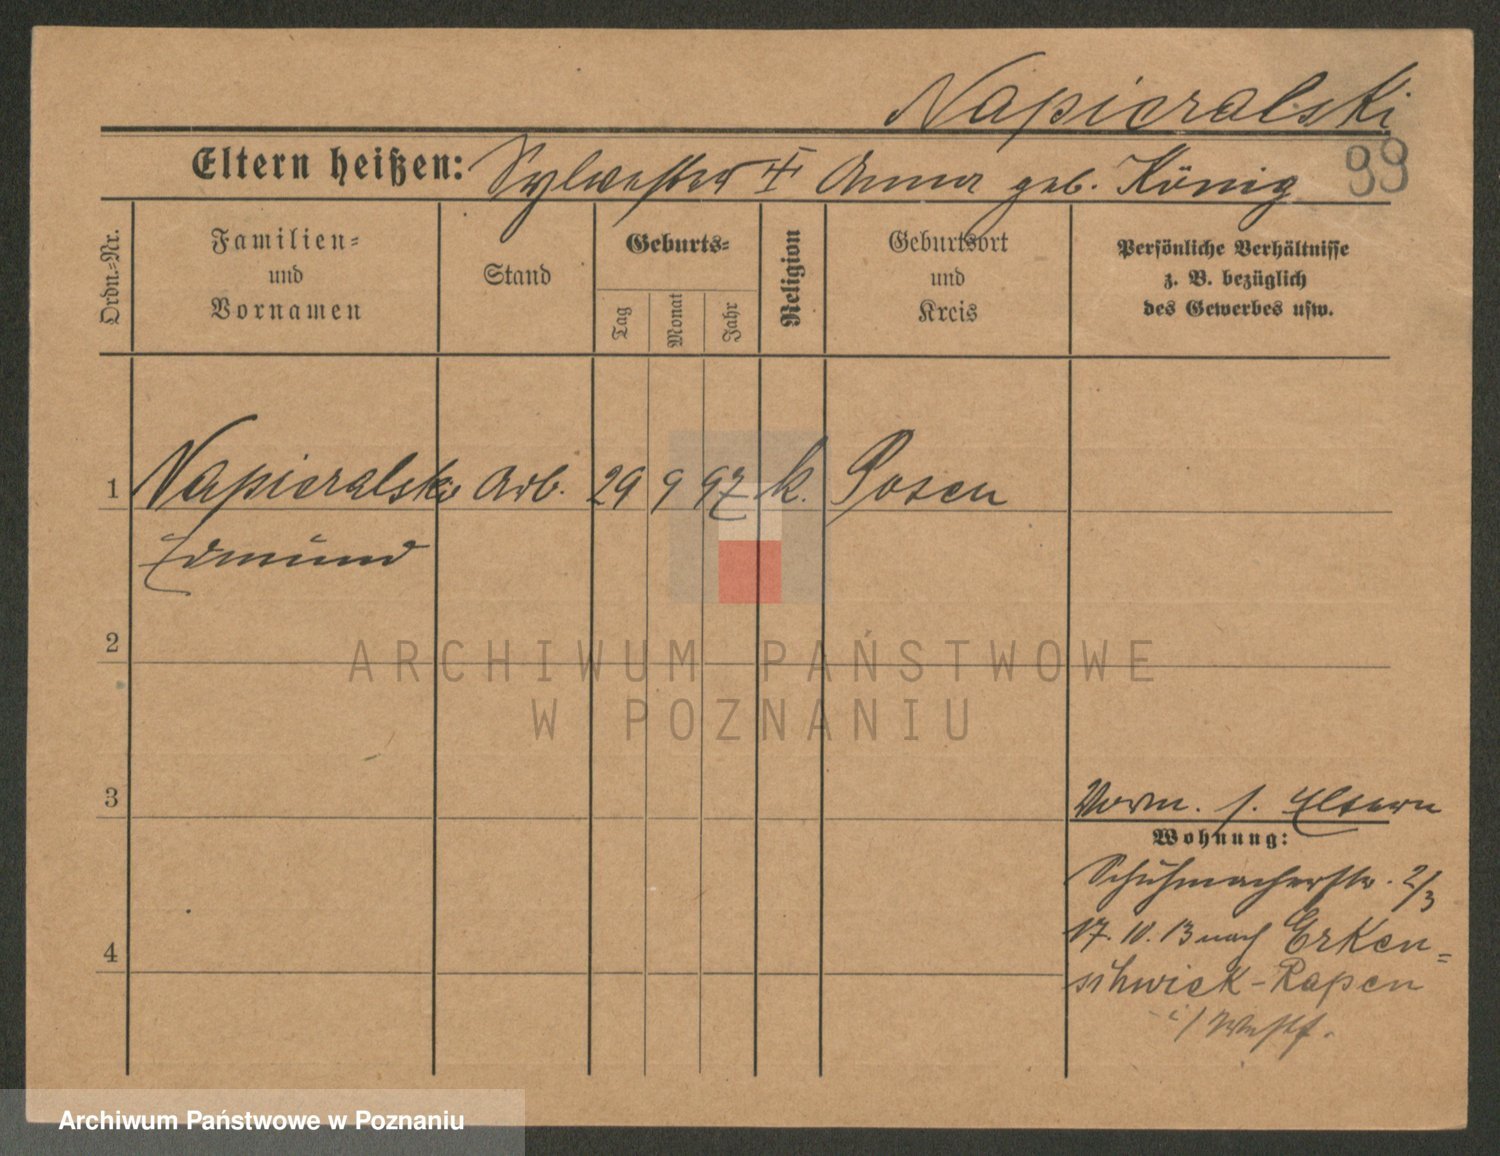 Napieralski
Eltern heißen: Sylvester + Anna geb. König 99
Ordn.=Nr.
Familien=
und
Vornamen
Stand
Geburts=
Tag
Monat
Jahr
Religion
Geburtsort
und
Kreis
Persönliche Verhältnisse
z. B. bezüglich
des Gewerbes usw.
1 Napieralski Arb. 29 9 97 k. Posen
Edmund
2
3
Vorm. s. Eltern
Wohnung:
Schuhmacherstr. 2/3
17. 10. 13 nach Erken=
4
schwick-Rapen
i/ Westf.
ARCHIWUM PAŃSTWOWE
W POZNANIU
Archiwum Państwowe w Poznaniu